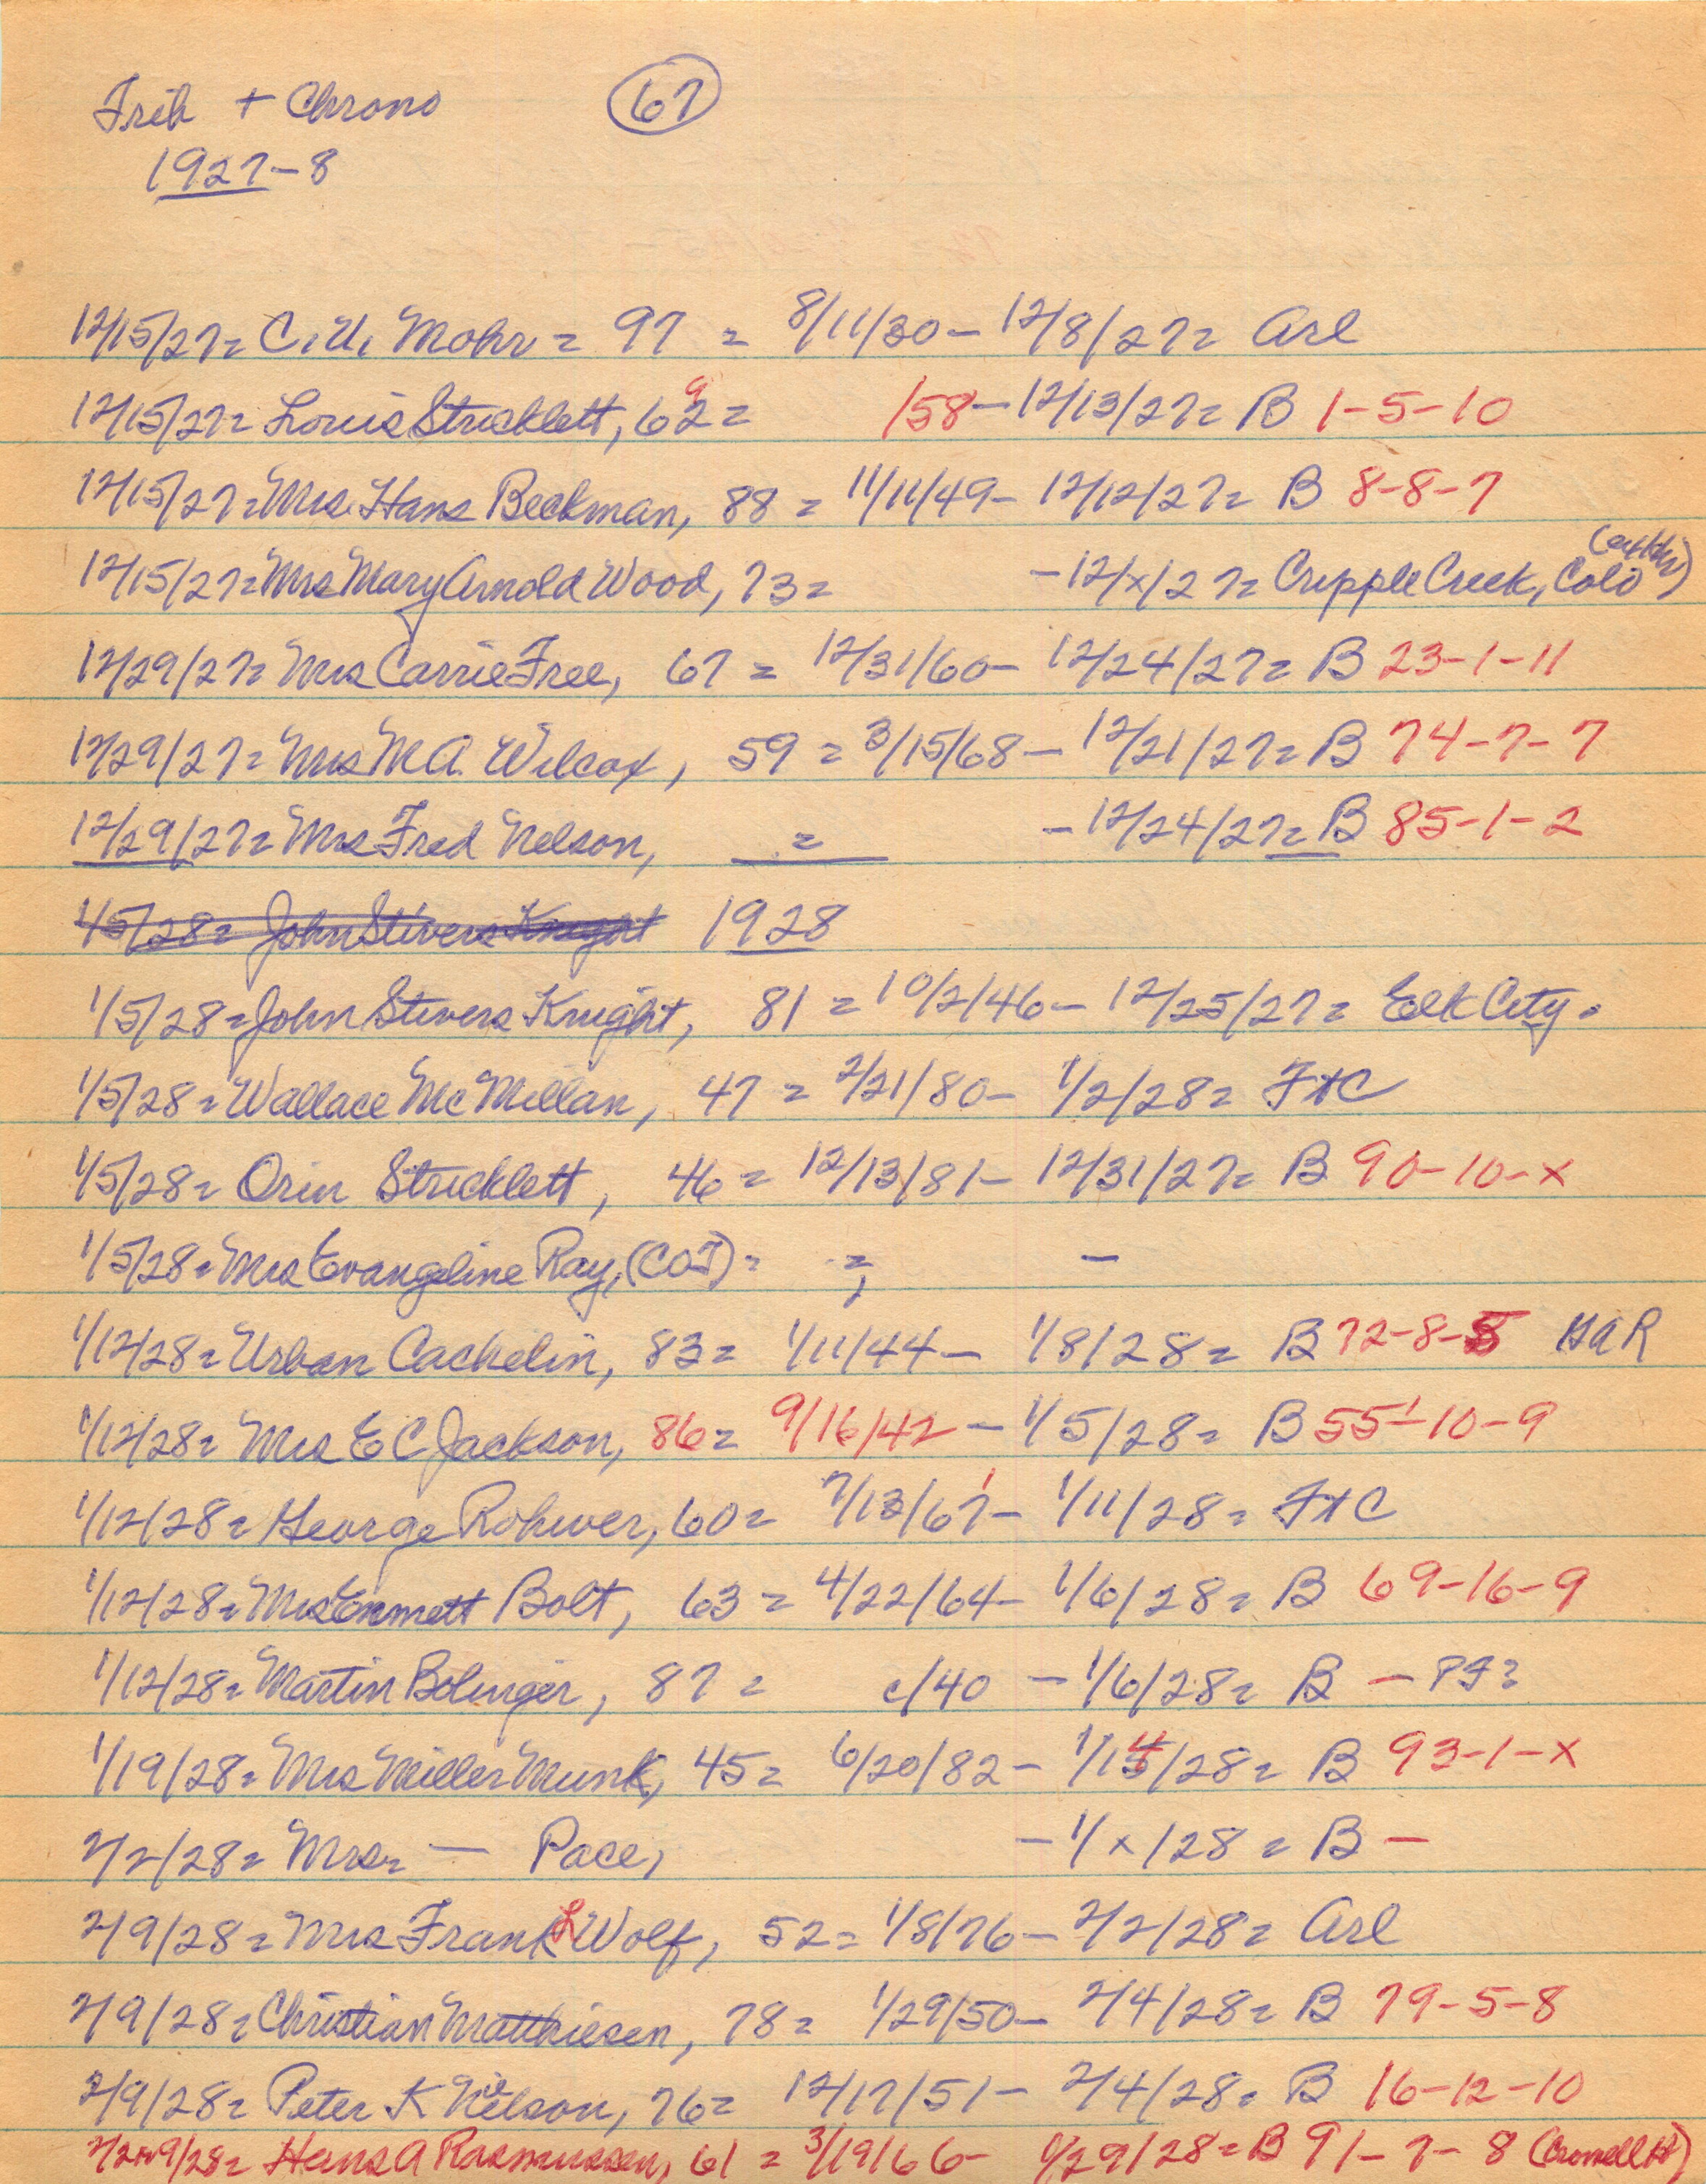 Trib + Chrono 67
1927-8
12/15/27= C.U. Mohr = 97 = 8/11/30 - 12/8/27= Arl
12/15/27= Louis Stricklett, 62 9 = /58 - 12/13/27= B 1-5-10
12/15/27= Mrs. Hans Beckman, 88 = 11/11/49 - 12/12/27= B 8-8-7
12/15/27= Mrs Mary Arnold Wood, 73 = - 12/x/27= Cripple Creek, Colo
12/29/27= Mrs Carrie Free, 67 = 12/31/60 - 12/24/27= B 23-1-11
12/29/27= Mrs M A. Wilcox, 59 = 3/15/68 - 12/21/27= B 74-7-7
12/29/27= Mrs Fred Nelson, = - 12/24/27= B 85-1-2
1/5/28= John Stivers Knight 1928
1/5/28= John Stivers Knight, 81 = 10/2/46 - 12/25/27= Elk City.
1/5/28= Wallace McMillan, 47 = 2/21/80 - 1/2/28= FtC
1/5/28= Orin Stricklett, 46 = 12/13/81 - 12/31/27= B 90-10-x
1/5/28= Mrs Evangeline Ray, (COT) = = -
1/12/28= Urban Cachelin, 83 = 1/11/44 - 1/8/28= B 72-8-5 GAR
1/12/28= Mrs E C Jackson, 86 = 9/16/42 - 1/5/28= B 55-10-9
1/12/28= George Rohwer, 60 = 7/13/67 - 1/11/28= FtC
1/12/28= Mrs Emmett Bolt, 63 = 4/22/64 - 1/6/28= B 69-16-9
1/12/28= Martin Bolinger, 87 = c/40 - 1/6/28= B - PF?
1/19/28= Mrs Miller Munk, 45 = 6/20/82 - 1/14/28= B 93-1-x
2/2/28= Mrs. — Pace, - 1/x/28= B -
2/9/28= Mrs Frank L Wolf, 52 = 1/8/76 - 2/2/28= Arl
2/9/28= Christian Matthiesen, 78 = 1/29/50 - 2/4/28= B 79-5-8
2/9/28= Peter K Nelson, 76 = 12/17/51 - 2/4/28= B 16-12-10
2/2+9/28= Hans A Rasmussen, 61 = 3/19/66 - 1/29/28= B 91-7-8